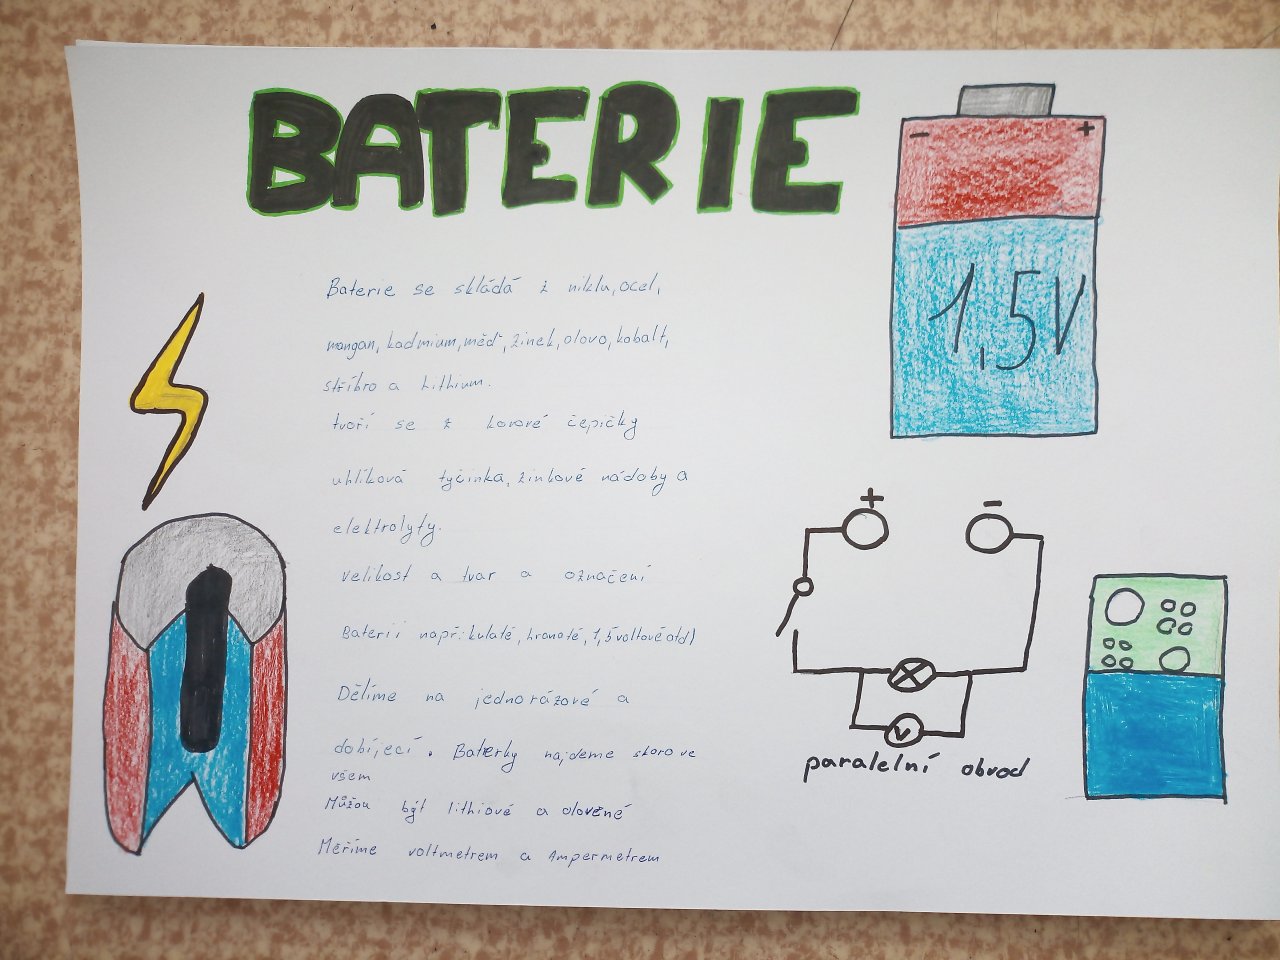 BATERIE
- +
1,5V
Baterie se skládá z niklu, ocel,
mangan, kadmium, měď, zinek, olovo, kobalt,
stříbro a lithium.
tvoří se z kovové čepičky
uhlíková tyčinka, zinkové nádoby a
elektrolyty.
velikost a tvar a označení
Baterií např: kulaté, hranaté, 1,5 voltové atd)
Dělíme na jednorázové a
dobíjecí. Baterky najdeme skoro ve
všem
Můžou být lithiové a olověné
Měříme voltmetrem a Ampermetrem
+ -
V
paralelní obvod